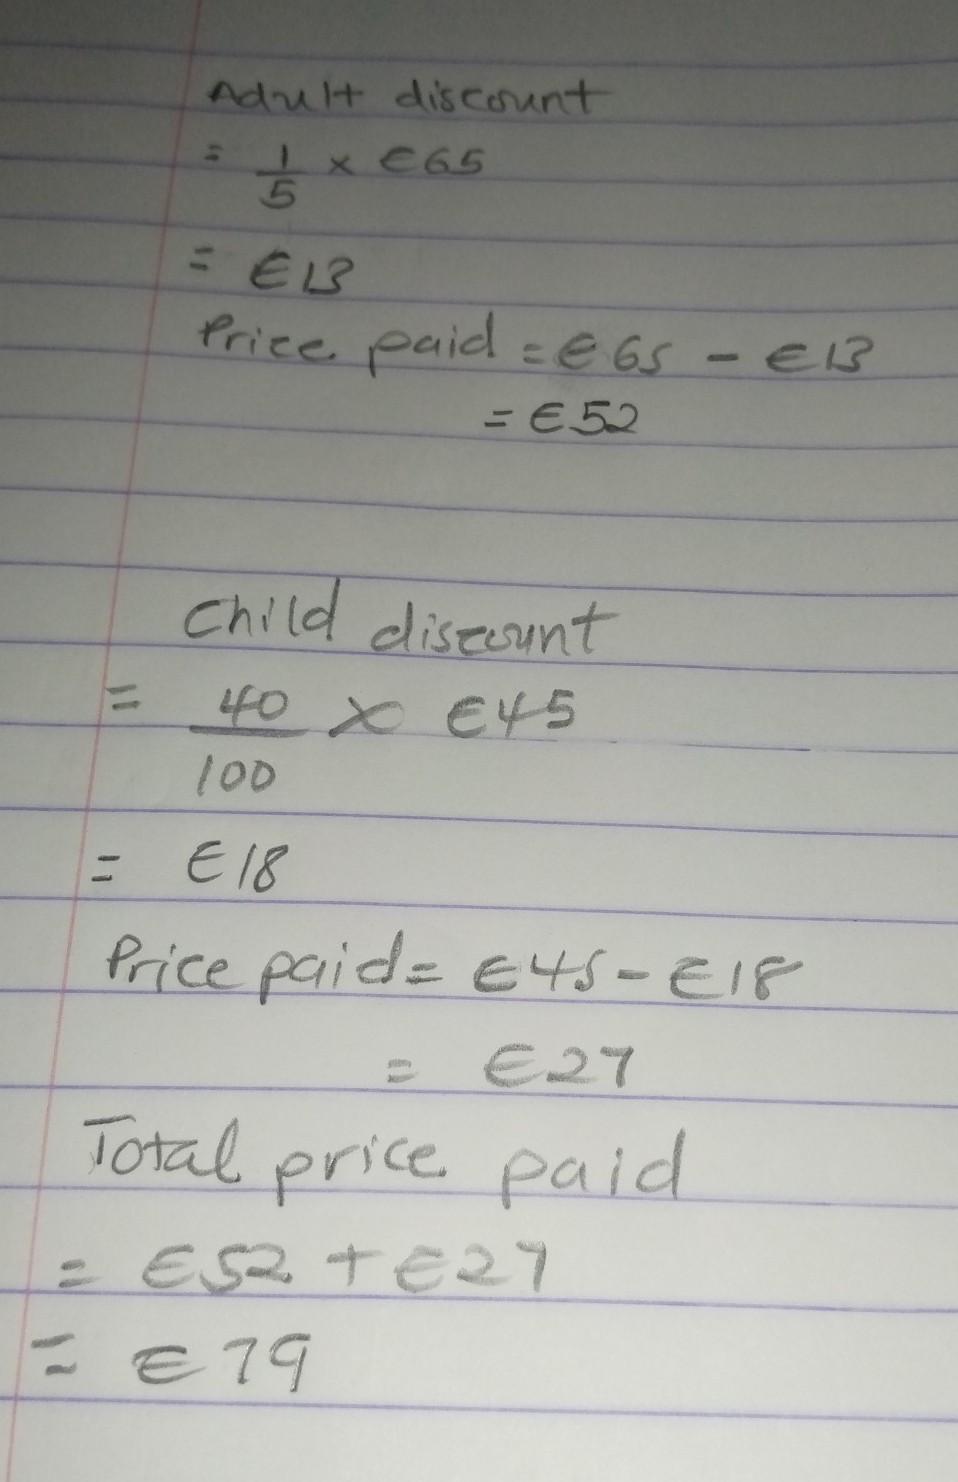 Adult discount
= 1/5 × €65
= €13
Price paid = €65 - €13
= €52
Child discount
= 40/100 × €45
= €18
Price paid = €45 - €18
= €27
Total price paid
= €52 + €27
= €79